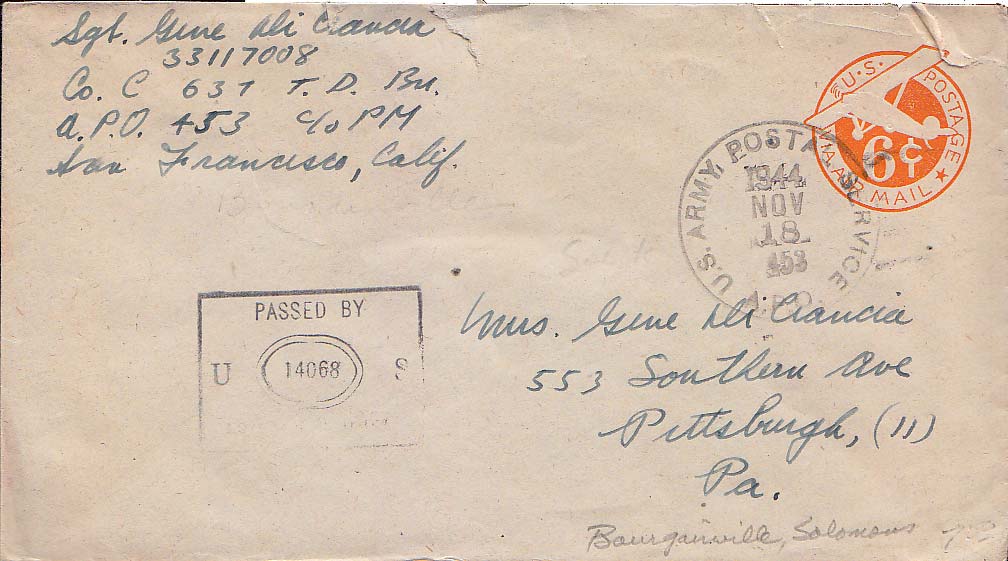 Sgt. Gene Di Ciancia
33117008
Co. C 637 T. D. Bn.
A.P.O. 453 c/o PM
San Francisco, Calif.
U.S. POSTAGE
VIA AIR MAIL
6¢
U.S. ARMY POSTAL SERVICE
1944
NOV
18
453
A.P.O.
PASSED BY
U 14068 S
Mrs. Gene Di Ciancia
553 Southern Ave
Pittsburgh, (11)
Pa.
Bourgainville, Solomons